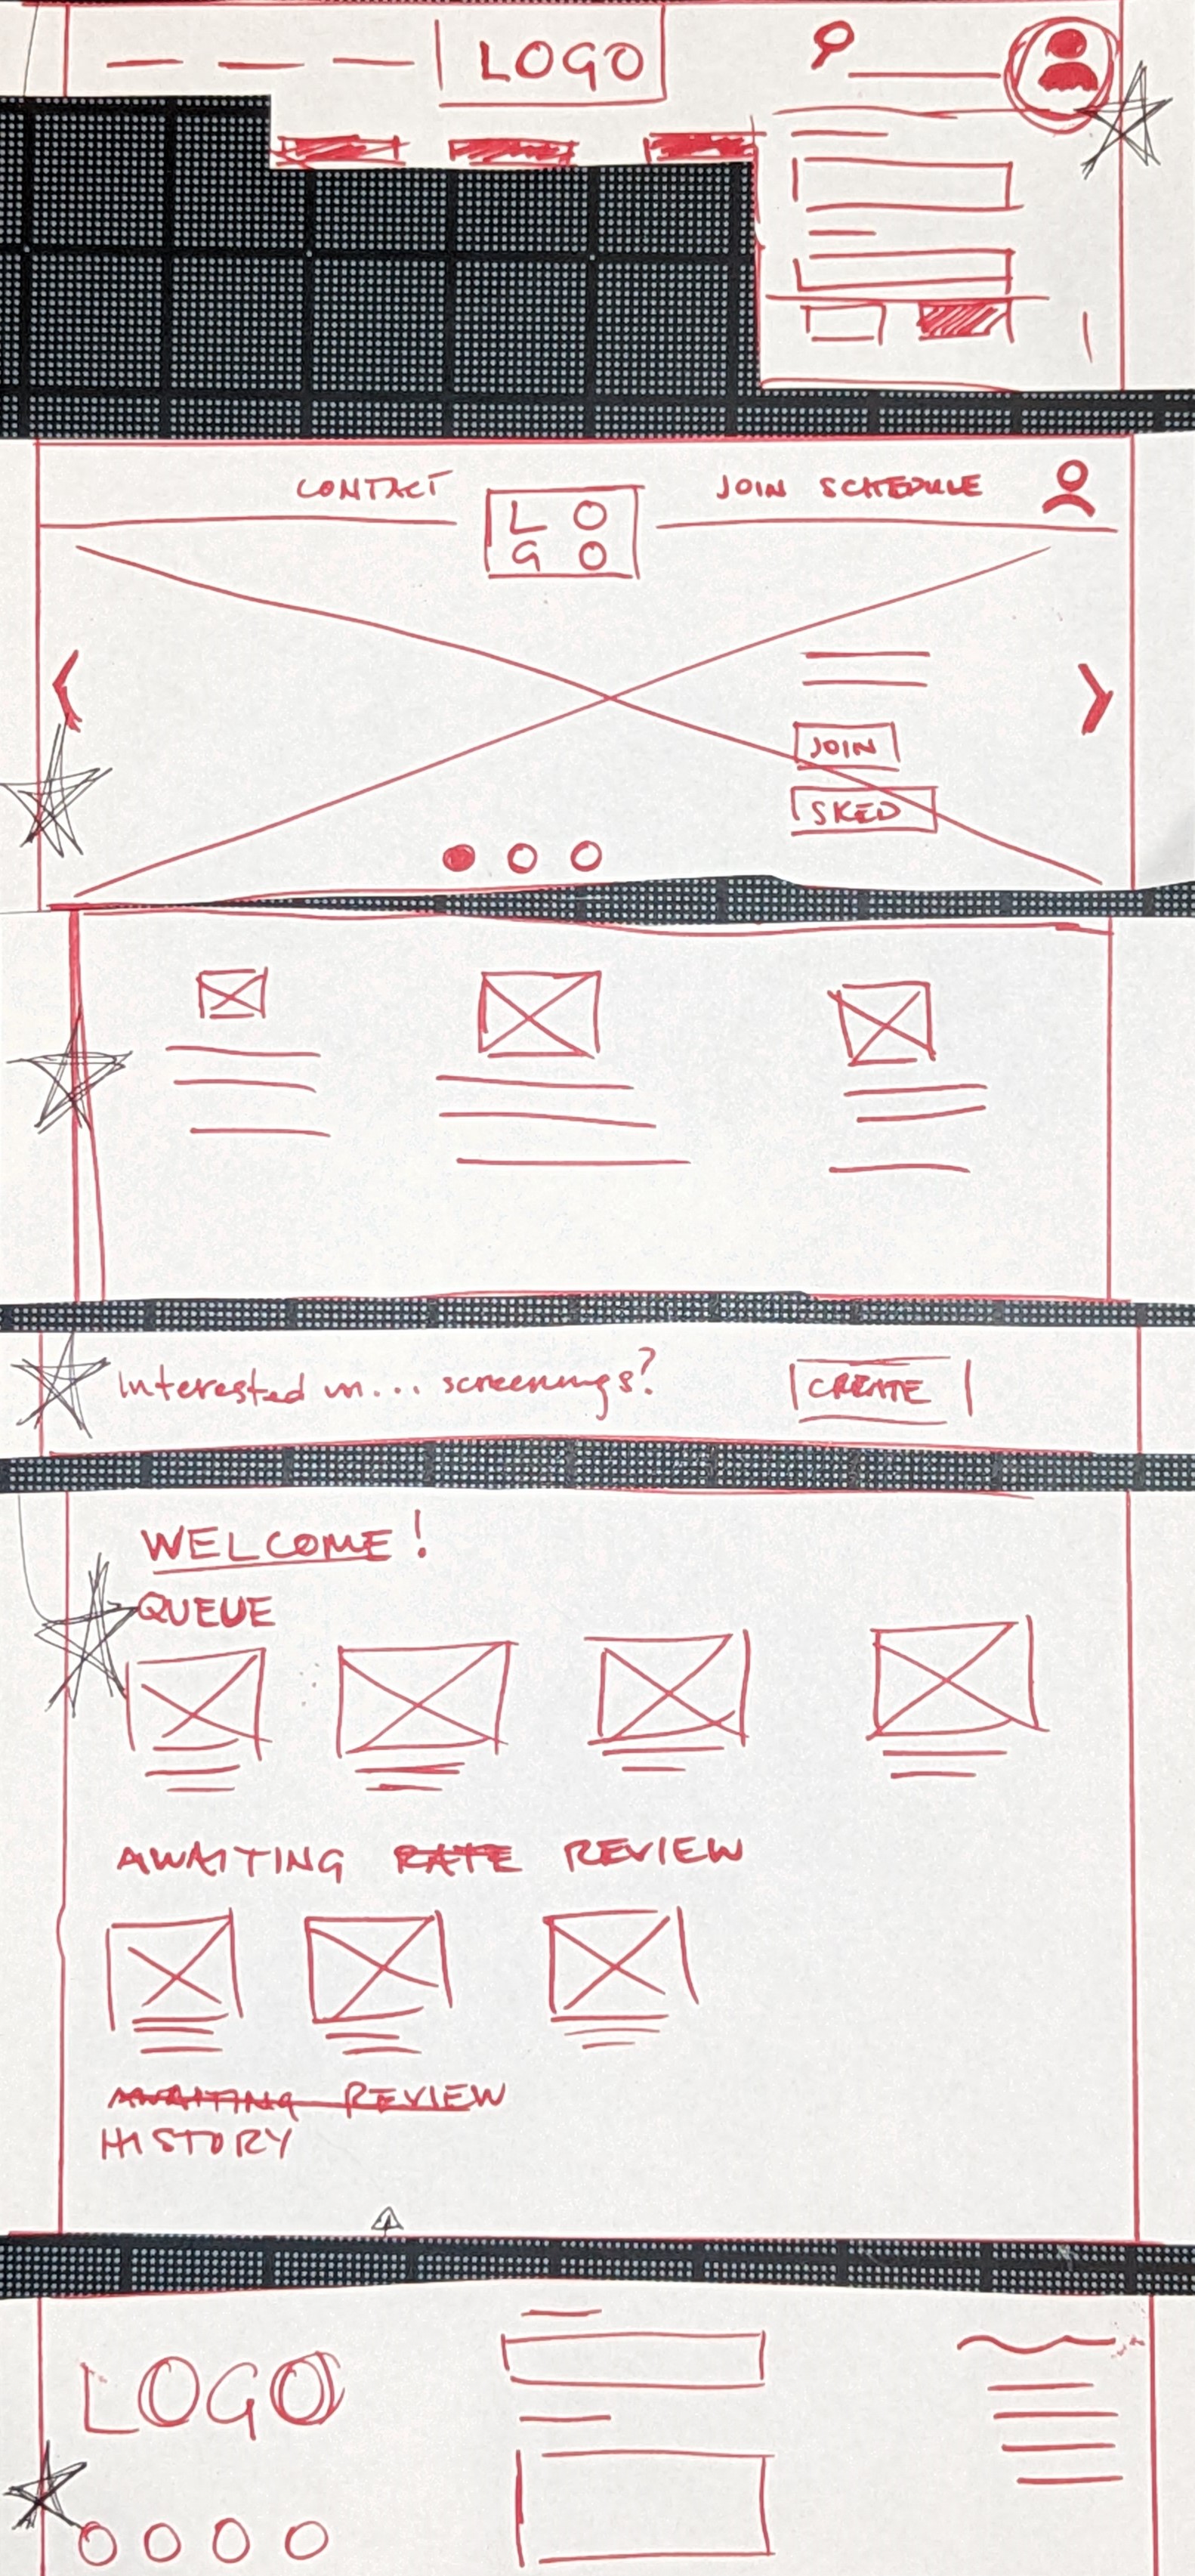 LOGO
CONTACT
JOIN SCHEDULE
L O
G O
JOIN
SKED
Interested in... screenings?
CREATE
WELCOME!
QUEUE
AWAITING RATE REVIEW
AWAITING REVIEW
HISTORY
LOGO